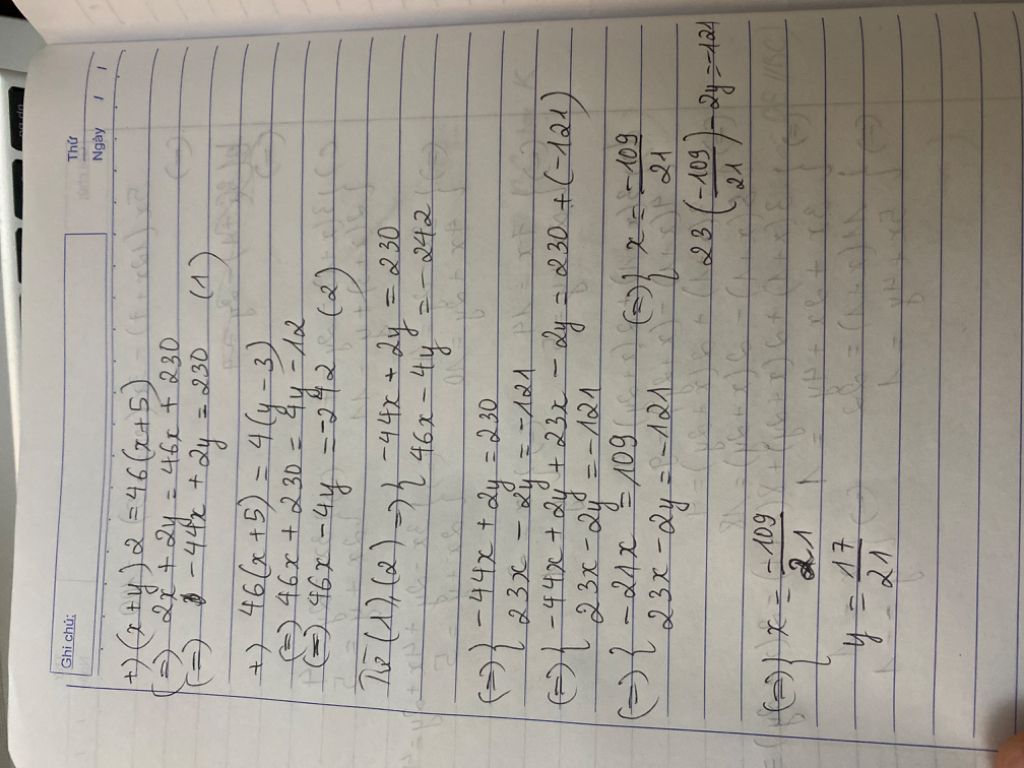 Thứ
Ngày / /
Ghi chú:
+) (x + y) 2 = 46 (x + 5)
(=) 2x + 2y = 46x + 230
(=) -44x + 2y = 230 (1)
+) 46(x + 5) = 4(y - 3)
(=) 46x + 230 = 4y - 12
(=) 46x - 4y = -242 (2)
Từ (1), (2) =) { -44x + 2y = 230
46x - 4y = -242
(=) { -44x + 2y = 230
23x - 2y = -121
(=) { -44x + 2y + 23x - 2y = 230 + (-121)
23x - 2y = -121
(=) { -21x = 109 (=) { x = -109/21
23x - 2y = -121 23(-109/21) - 2y = -121
(=) { x = -109/21
y = 17/21